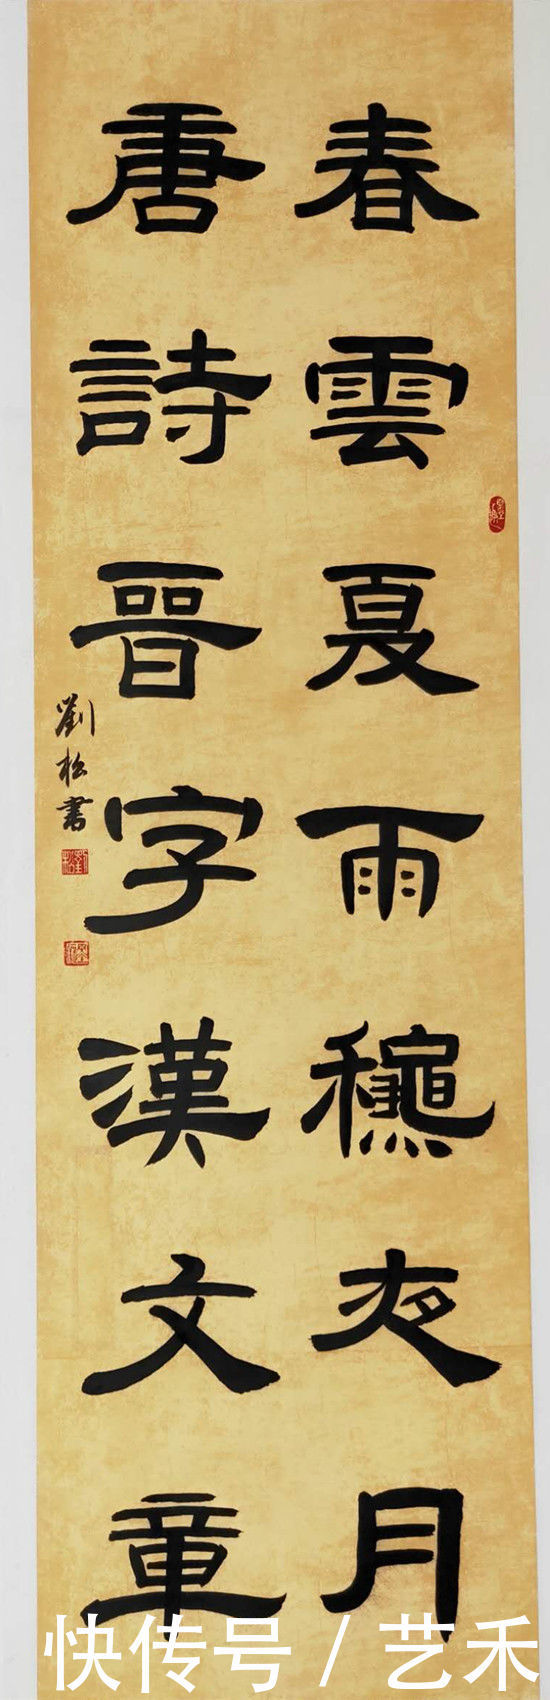 春雲夏雨龝夜月
唐詩晉字漢文章
劉松書
快传号/艺禾